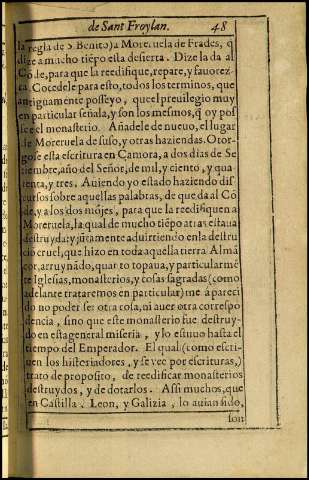 de Sant Froylan. 48
la regla de S. Benito) a Moreruela de Frades, q
dize a mucho tiẽpo esta desierta. Dize la da al
Cõde, para que la reedifique, repare, y fauorez-
ca. Cõcedele para esto, todos los terminos, que
antiguamente posseyo, que el preuilegio muy
en particular señala, y son los mesmos, q̃ oy pos
see el monasterio. Añadele de nueuo, el lugar
de Moreruela de suso, y otras haziendas. Otor-
gose esta escritura en Çamora, a dos dias de Se
tiembre, año del Señor, de mil, y ciento, y qua-
renta, y tres. Auiendo yo estado haziendo dis-
cursos sobre aquellas palabras, de que da al Cõ
de, y a los dos mõjes, para que la reedifiquen a
Moreruela, la qual de mucho tiẽpo atras estaua
destruyda: y jũtamente aduirtiendo en la destru
ciõ cruel, que hizo en toda aquella tierra Almã
çor, arruynãdo, quãto topaua, y particularmẽ
te Iglesias, monasterios, y cosas sagradas (como
adelante trataremos en particular) me a pareci
do no poder ser otra cosa, ni auer otra correspo
dencia, sino que este monasterio fue destruy-
do en esta general miseria, y lo estuuo hasta el
tiempo del Emperador. El qual (como escri-
uen los historiadores, y se vee por escrituras,)
trato de proposito, de reedificar monasterios
destruydos, y de dotarlos. Assi muchos, que
en Castilla, Leon, y Galizia, lo auian sido,
son